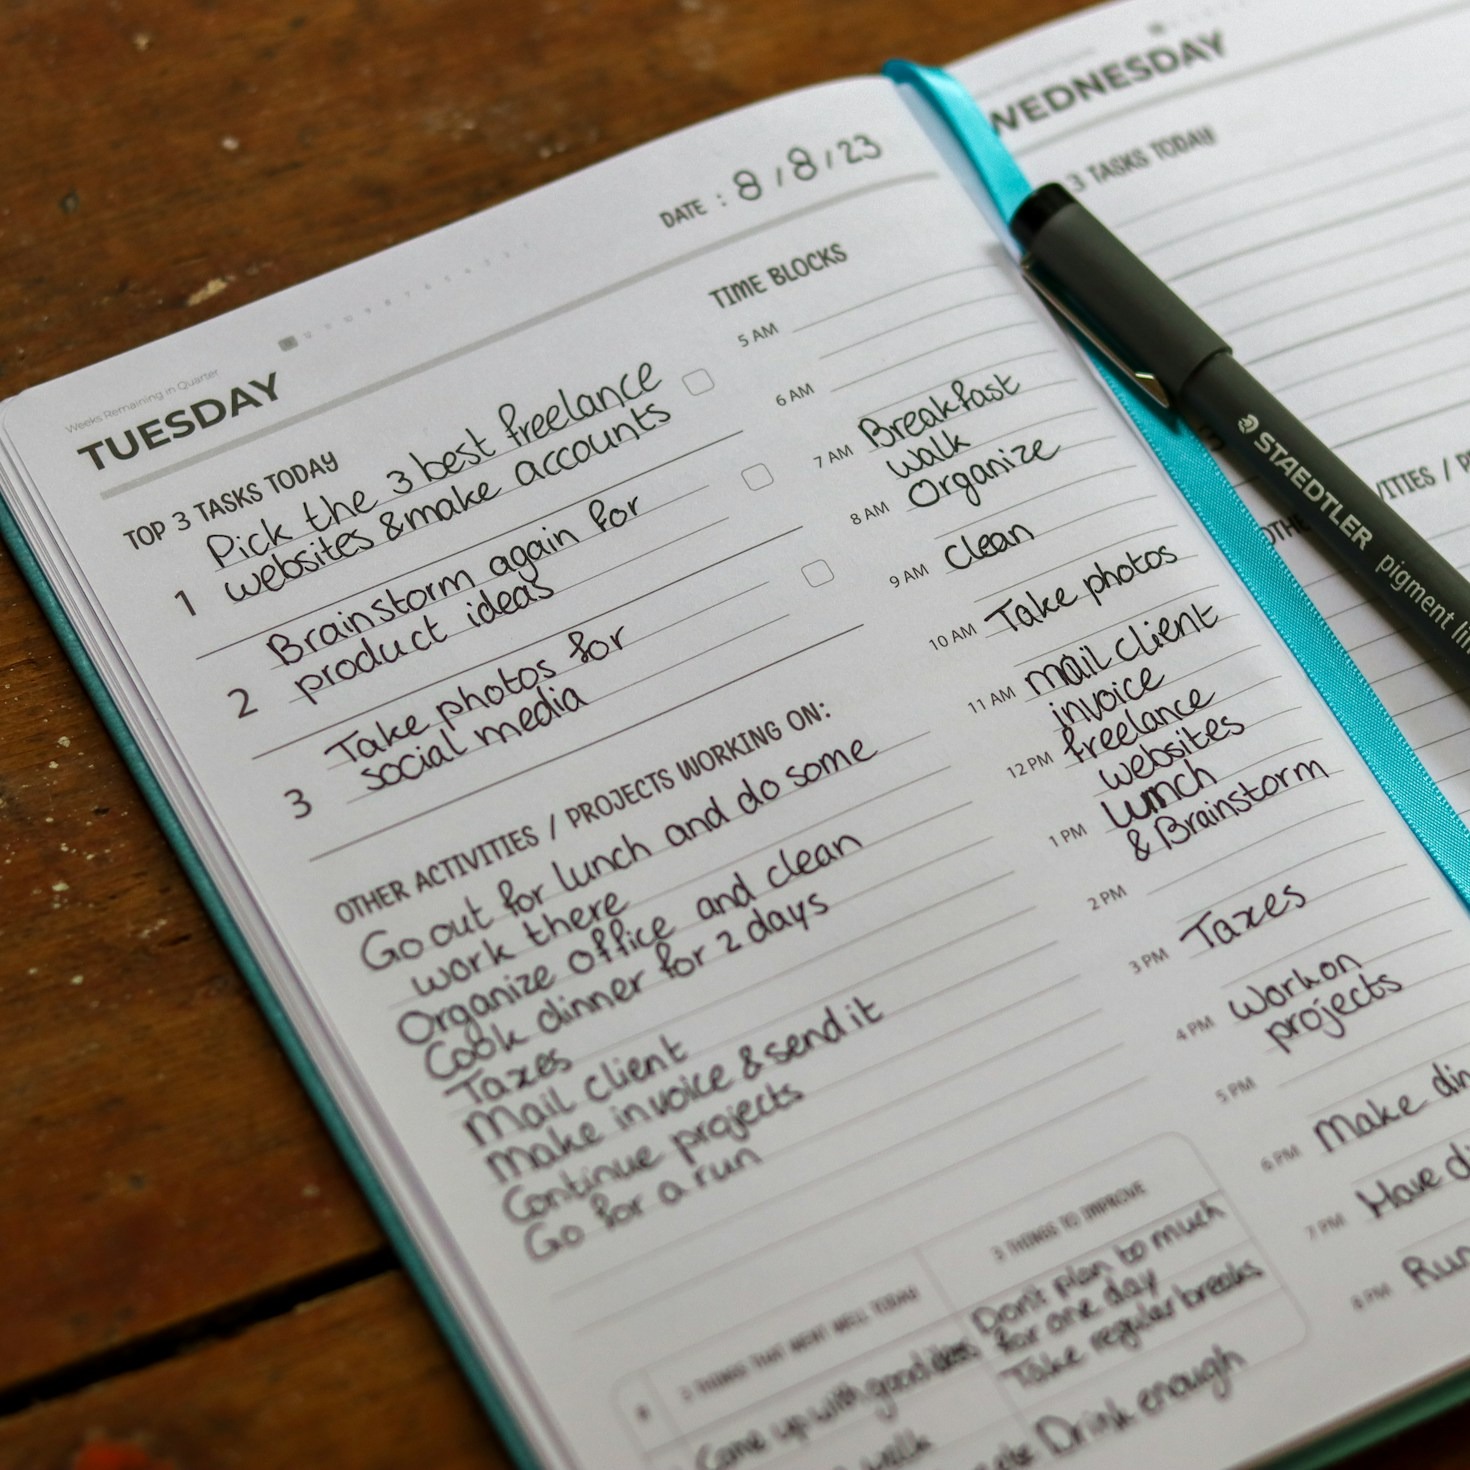 Weeks Remaining in Quarter
TUESDAY
DATE : 8 / 8 / 23
TOP 3 TASKS TODAY
1 Pick the 3 best freelance
websites & make accounts
2 Brainstorm again for
product ideas
3 Take photos for
social media
OTHER ACTIVITIES / PROJECTS WORKING ON:
Go out for lunch and do some
work there
Organize office and clean
Cook dinner for 2 days
Taxes
Mail client
Make invoice & send it
Continue projects
Go for a run
TIME BLOCKS
5 AM
6 AM
7 AM Breakfast
walk
8 AM Organize
9 AM clean
10 AM Take photos
11 AM mail client
invoice
12 PM freelance
websites
1 PM lunch
& Brainstorm
2 PM
3 PM Taxes
4 PM work on
projects
5 PM
6 PM Make din
7 PM Have di
8 PM Run
THINGS THAT WENT WELL TODAY
Come up with good ideas
walk
THINGS TO IMPROVE
Don't plan to much
for one day
Take regular breaks
Drink enough
WEDNESDAY
3 TASKS TODAY
3
OTHE VITIES / P
STAEDTLER pigment lin